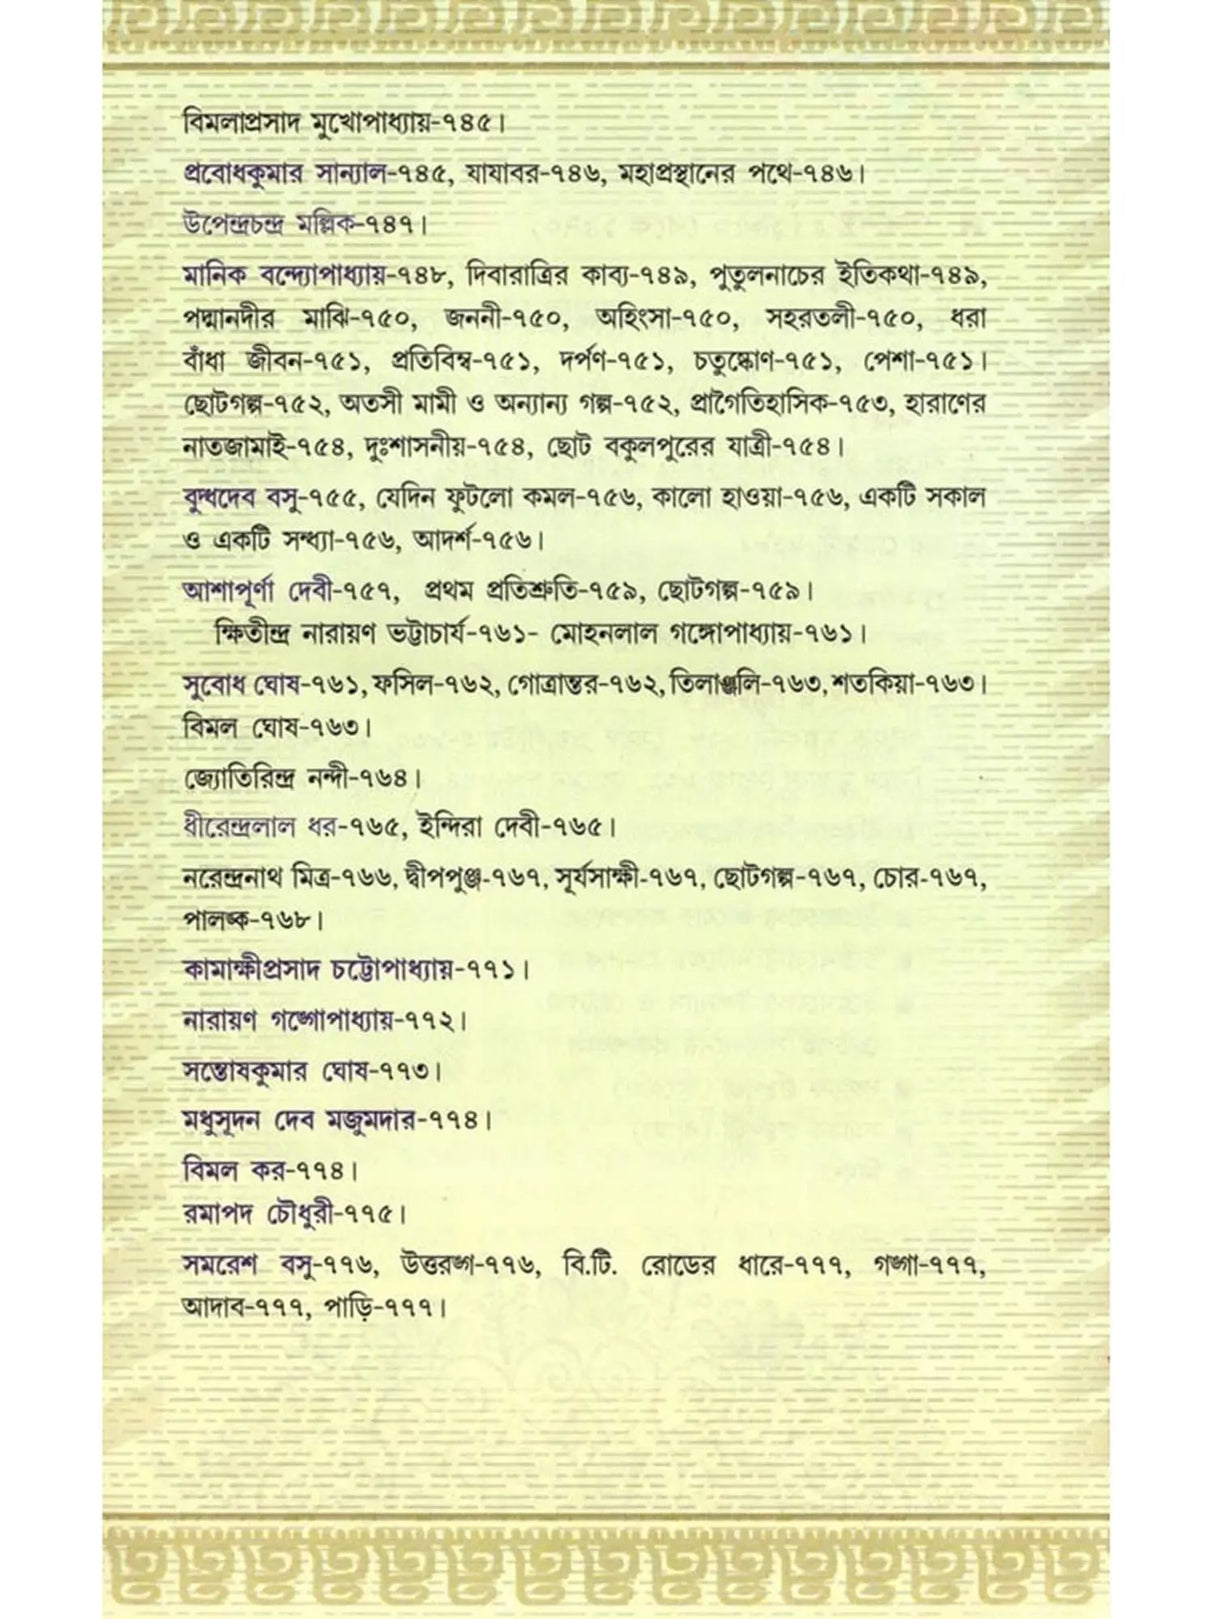 বিমলাপ্রসাদ মুখোপাধ্যায়-৭৪৫।
প্রবোধকুমার সান্যাল-৭৪৫, যাযাবর-৭৪৬, মহাপ্রস্থানের পথে-৭৪৬।
উপেন্দ্রচন্দ্র মল্লিক-৭৪৭।
মানিক বন্দ্যোপাধ্যায়-৭৪৮, দিবারাত্রির কাব্য-৭৪৯, পুতুলনাচের ইতিকথা-৭৪৯,
পদ্মানদীর মাঝি-৭৫০, জননী-৭৫০, অহিংসা-৭৫০, সহরতলী-৭৫০, ধরা
বাঁধা জীবন-৭৫১, প্রতিবিম্ব-৭৫১, দর্পণ-৭৫১, চতুষ্কোণ-৭৫১, পেশা-৭৫১।
ছোটগল্প-৭৫২, অতসী মামী ও অন্যান্য গল্প-৭৫২, প্রাগৈতিহাসিক-৭৫৩, হারাণের
নাতজামাই-৭৫৪, দুঃশাসনীয়-৭৫৪, ছোট বকুলপুরের যাত্রী-৭৫৪।
বুদ্ধদেব বসু-৭৫৫, যেদিন ফুটলো কমল-৭৫৬, কালো হাওয়া-৭৫৬, একটি সকাল
ও একটি সন্ধ্যা-৭৫৬, আদর্শ-৭৫৬।
আশাপূর্ণা দেবী-৭৫৭, প্রথম প্রতিশ্রুতি-৭৫৯, ছোটগল্প-৭৫৯।
ক্ষিতীন্দ্র নারায়ণ ভট্টাচার্য-৭৬১- মোহনলাল গঙ্গোপাধ্যায়-৭৬১।
সুবোধ ঘোষ-৭৬১, ফসিল-৭৬২, গোত্রান্তর-৭৬২, তিলাঞ্জলি-৭৬৩, শতকিয়া-৭৬৩।
বিমল ঘোষ-৭৬৩।
জ্যোতিরিন্দ্র নন্দী-৭৬৪।
ধীরেন্দ্রলাল ধর-৭৬৫, ইন্দিরা দেবী-৭৬৫।
নরেন্দ্রনাথ মিত্র-৭৬৬, দ্বীপপুঞ্জ-৭৬৭, সূর্যসাক্ষী-৭৬৭, ছোটগল্প-৭৬৭, চোর-৭৬৭,
পালঙ্ক-৭৬৮।
কামাক্ষীপ্রসাদ চট্টোপাধ্যায়-৭৭১।
নারায়ণ গঙ্গোপাধ্যায়-৭৭২।
সন্তোষকুমার ঘোষ-৭৭৩।
মধুসূদন দেব মজুমদার-৭৭৪।
বিমল কর-৭৭৪।
রমাপদ চৌধুরী-৭৭৫।
সমরেশ বসু-৭৭৬, উত্তরঙ্গ-৭৭৬, বি.টি. রোডের ধারে-৭৭৭, গঙ্গা-৭৭৭,
আদাব-৭৭৭, পাড়ি-৭৭৭।